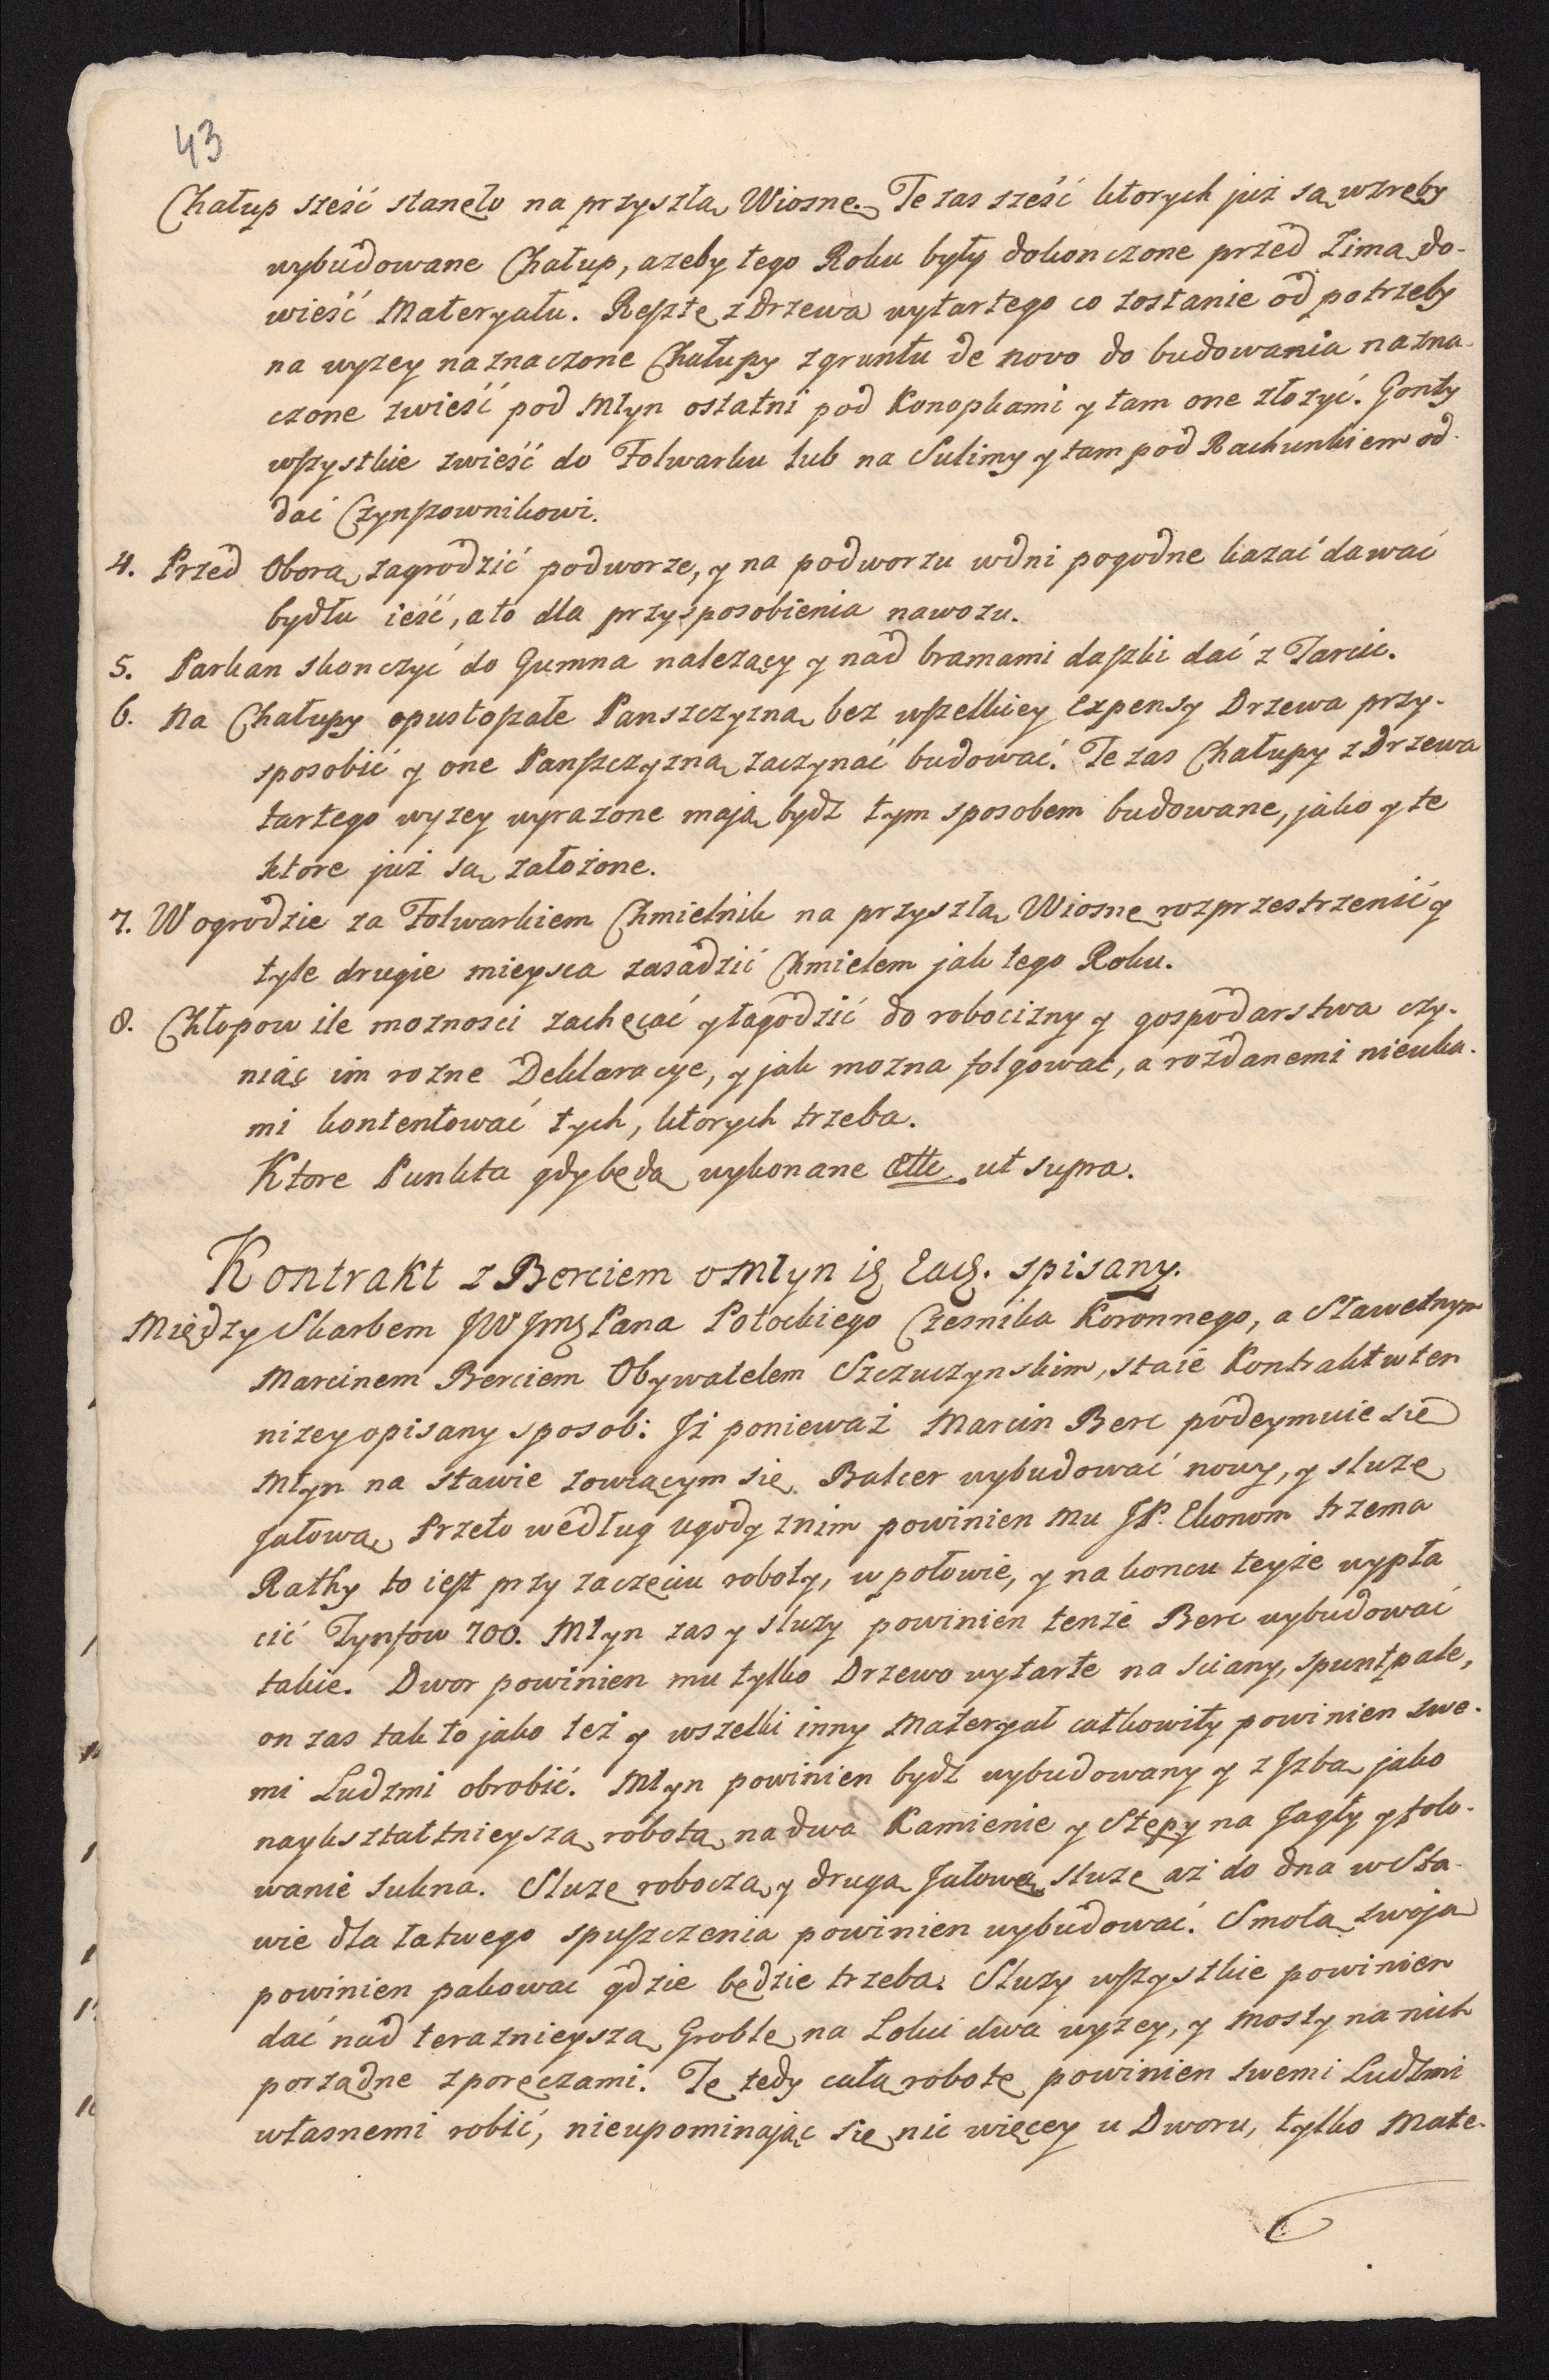 43
Chałup sześć stanęło na przyszłą Wiosnę. Te zas sześć ktorych już są wzręby
wybudowane Chałup, azeby tego Roku były dokonczone przed Zimą do-
wieść Materyału. Resztę z Drzewa wytartego co zostanie od potrzeby
na wyzey naznaczone Chałupy zgruntu de novo do budowania nazna-
czone zwieść pod Młyn ostatni pod Konopkami y tam one złozyć. Gonty
wszystkie zwieść do Folwarku lub na Sulimy y tam pod Rachunkiem od-
dać Czynszownikowi.
4. Przed Oborą zagrodzić podworze, y na podworzu wdni pogodne kazać dawać
bydłu ieść, a to dla przysposobienia nawozu.
5. Parkan skonczyć do Gumna nalezący y nad bramami daszki dać z Tarcic.
6. Na Chałupy opustoszałe Panszczyzną bez wszelkiey Expensy Drzewa przy-
sposobić y one Panszczyzną zaczynać budować. Te zas Chałupy z Drzewa
tartego wyzey wyrazone mają bydz tym sposobem budowane, jako y te
ktore już są założone.
7. W ogrodzie za Folwarkiem Chmielnik na przyszłą Wiosnę rozprzestrzenić y
tyle drugie mieysca zasadzić Chmielem jak tego Roku.
8. Chłopow ile moznosci zachęcać y łagodzić do robocizny y gospodarstwa czy-
niąc im rozne Deklaracye, y jak mozna folgowac, a rozdanemi nieuka-
mi kontentować tych, ktorych trzeba.
Ktore Punkta gdy będą wykonane Ettc. ut supra.
Kontrakt z Berciem o Młyn spisany.
Między Skarbem JW Jmci Pana Potockiego Czesnika Koronnego, a Sławetnym
Marcinem Berciem Obywatelem Szczuczynskim, staie Kontrakt w ten
nizey opisany sposob: Jż ponieważ Marcin Berc podeymuie się
Młyn na stawie zowiącym się Balcer wybudować nowy, y sluzę
Jałową, Przeto według ugody znim powinien mu JP. Ekonom trzema
Rathy to iest przy zaczęciu roboty, w połowie, y na koncu teyże wypła
cić Tynfów 700. Młyn zas y sluzy powinien tenże Berc wybudować
takie. Dwor powinien mu tylko Drzewo wytarte na sciany, spunt, pale,
on zas tak to jako też y wszelki inny Materyał całkowity powinien swe-
mi Ludzmi obrobić. Młyn powinien bydz wybudowany y z Jzbą jako
naykształtnieyszą robotą na dwa Kamienie y Stępy na Jagły y folo-
wanie sukna. Sluzę roboczą y drugą Jałową sluzę aż do dna w Sta-
wie dla łatwego spuszczenia powinien wybudować. Smołą swoją
powinien pakowac gdzie będzie trzeba. Sluzy wszystkie powinien
dać nad teraznieyszą Groblę na Lokci dwa wyzey, y mosty na nich
porządne z poręczami. Tę tedy całą robotę powinien swemi Ludzmi
własnemi robić, nieupominając się nic więcey u Dworu, tylko Mate-